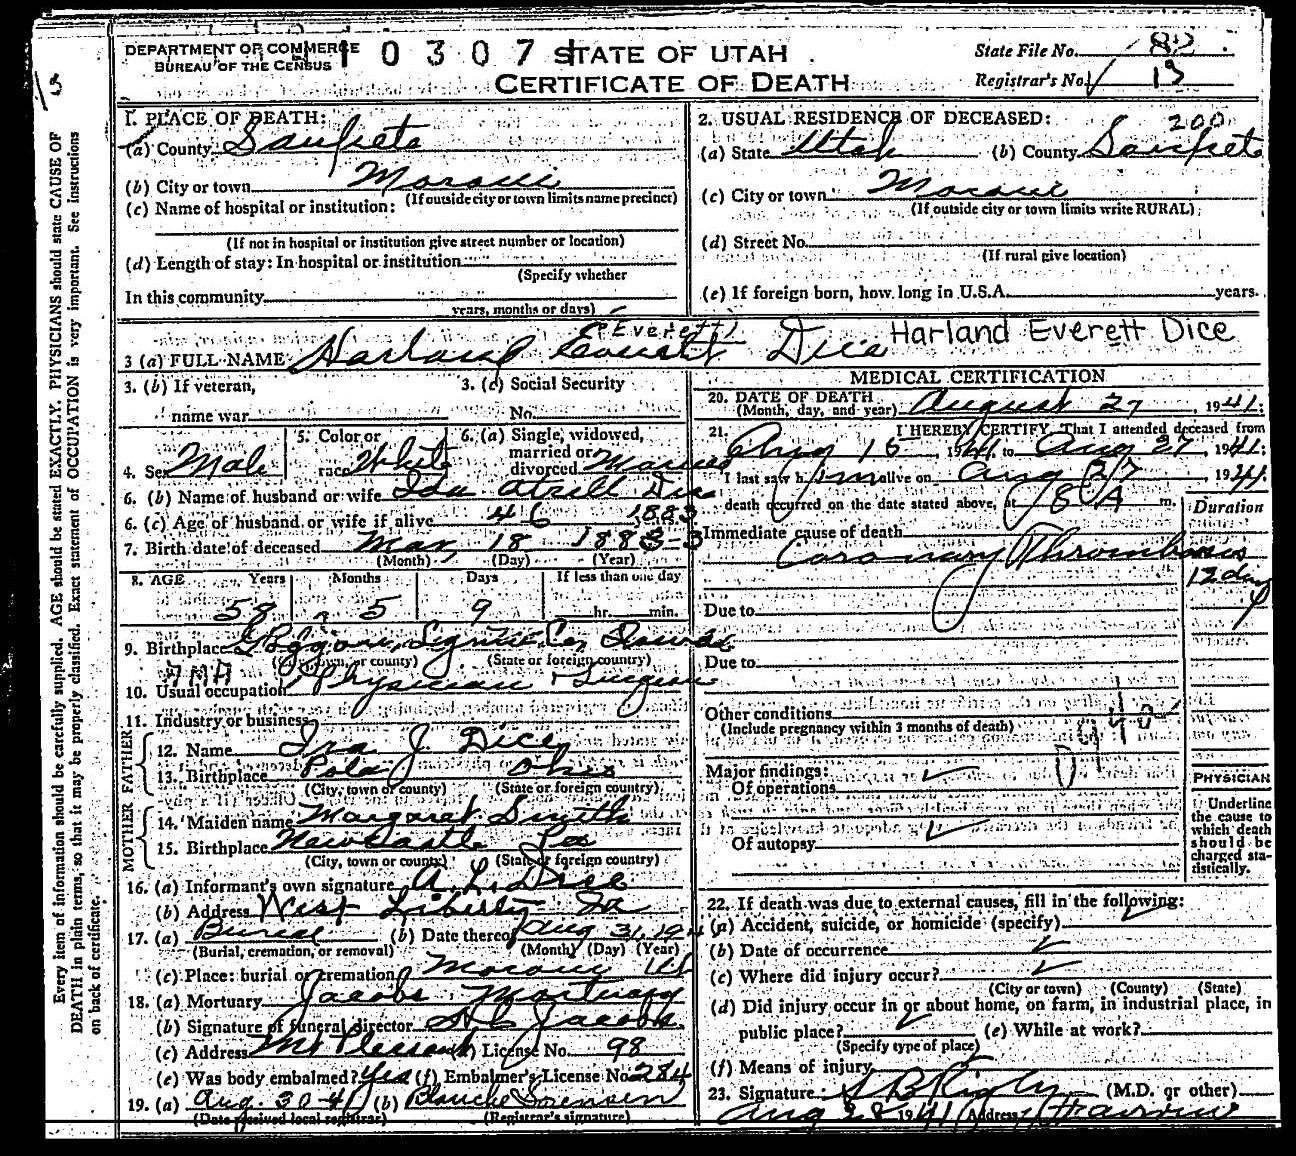 DEPARTMENT OF COMMERCE
BUREAU OF THE CENSUS
0307
STATE OF UTAH
CERTIFICATE OF DEATH
State File No. 82
Registrar's No. 13
1. PLACE OF DEATH:
(a) County Sanpete
(b) City or town Moroni
(If outside city or town limits name precinct)
(c) Name of hospital or institution:
(If not in hospital or institution give street number or location)
(d) Length of stay: In hospital or institution
(Specify whether
In this community
years, months or days)
2. USUAL RESIDENCE OF DECEASED:
200
(a) State Utah (b) County Sanpete
(c) City or town Moroni
(If outside city or town limits write RURAL)
(d) Street No.
(If rural give location)
(e) If foreign born, how long in U.S.A. years.
(Everett)
3 (a) FULL NAME Harland Everett Dice
Harland Everett Dice
3. (b) If veteran,
name war
3. (c) Social Security
No.
4. Sex Male
5. Color or
race White
6. (a) Single, widowed,
married or
divorced Married
6. (b) Name of husband or wife Ida Dice
6. (c) Age of husband or wife if alive 46 1883
7. Birth date of deceased Mar 18 1883-3
(Month) (Day) (Year)
8. AGE Years Months Days If less than one day
58 5 9 hr. min.
9. Birthplace
(City, town, or county) (State or foreign country)
AMA
10. Usual occupation Physician & Surgeon
11. Industry or business
FATHER
12. Name Ira J. Dice
13. Birthplace Ohio
(City, town or county) (State or foreign country)
MOTHER
14. Maiden name Margaret Smith
15. Birthplace Newcastle Pa
(City, town or county) (State or foreign country)
16. (a) Informant's own signature A. L. Dice
(b) Address West Liberty Ia
17. (a) Burial (b) Date thereof Aug 31, 1941
(Burial, cremation, or removal) (Month) (Day) (Year)
(c) Place: burial or cremation Moroni Ut
18. (a) Mortuary Jacobs Mortuary
(b) Signature of funeral director Jacobs
(c) Address Mt Pleasant (d) License No. 98
(e) Was body embalmed? Yes (f) Embalmer's License No. 284
19. (a) Aug. 30-41 (b) Blanche Sorensen
(Date received local registrar) (Registrar's signature)
MEDICAL CERTIFICATION
20. DATE OF DEATH
(Month, day, and year) August 27, 1941:
21. I HEREBY CERTIFY, That I attended deceased from
Aug 15, 1941, to Aug 27, 1941:
I last saw him alive on Aug 27, 1941.
death occurred on the date stated above, at 8 A m.
Duration
Immediate cause of death
Coronary Thrombosis
12 days
Due to
Due to
Other conditions
(Include pregnancy within 3 months of death)
Major findings:
Of operations
Of autopsy
PHYSICIAN
Underline
the cause to
which death
should be
charged sta-
tistically.
22. If death was due to external causes, fill in the following:
(a) Accident, suicide, or homicide (specify)
(b) Date of occurrence
(c) Where did injury occur?
(City or town) (County) (State)
(d) Did injury occur in or about home, on farm, in industrial place, in
public place? (e) While at work?
(Specify type of place)
(f) Means of injury
23. Signature: S B Rigby (M.D. or other)
Aug 28 1941 Address Fairview
Every item of information should be carefully supplied. AGE should be stated EXACTLY. PHYSICIANS should state CAUSE OF
DEATH in plain terms, so that it may be properly classified. Exact statement of OCCUPATION is very important. See instructions
on back of certificate.